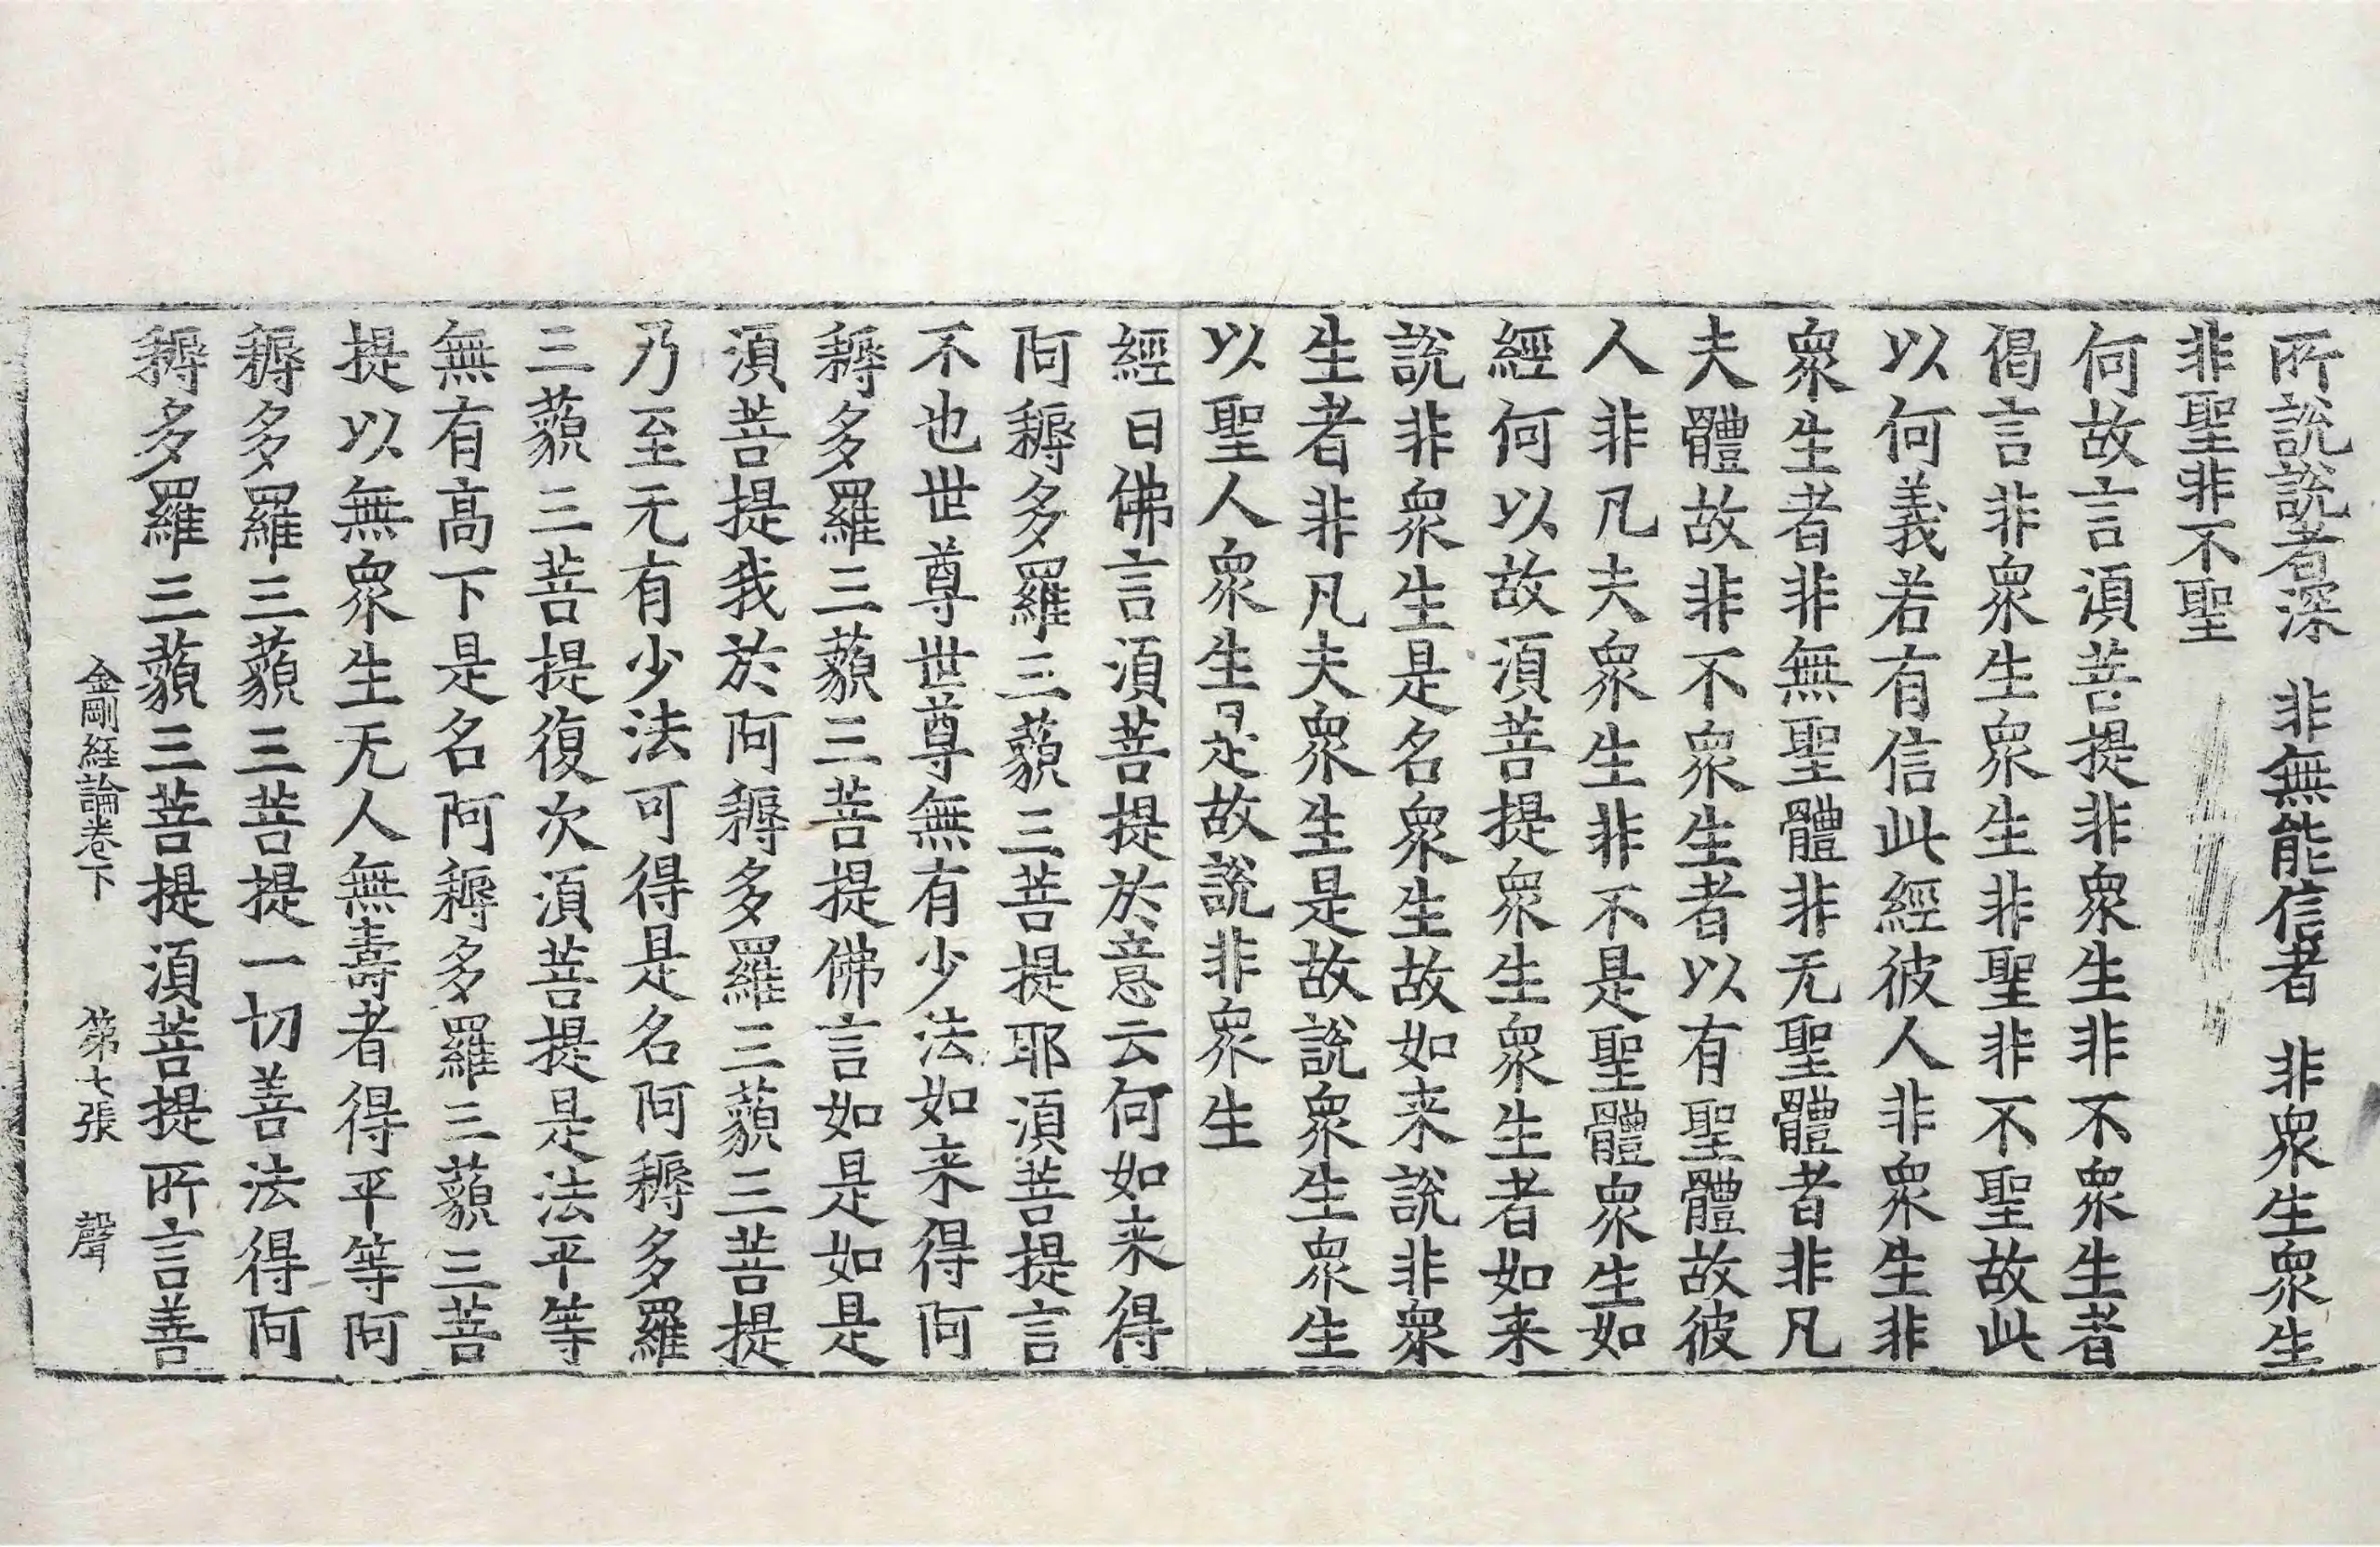 所說說者深　非無能信者　非衆生衆生
非聖非不聖
何故言湏菩提非衆生非不衆生者
偈言非衆生衆生非聖非不聖故此
以何義若有信此經彼人非衆生非
衆生者非無聖體非无聖體者非凡
夫體故非不衆生者以有聖體故彼
人非凡夫衆生非不是聖體衆生如
經何以故湏菩提衆生衆生者如来
說非衆生是名衆生故如来說非衆
生者非凡夫衆生是故說衆生衆生
以聖人衆生是故說非衆生
經曰佛言湏菩提於意云何如来得
阿耨多羅三藐三菩提耶湏菩提言
不也世尊世尊無有少法如来得阿
耨多羅三藐三菩提佛言如是如是
湏菩提我於阿耨多羅三藐三菩提
乃至无有少法可得是名阿耨多羅
三藐三菩提復次湏菩提是法平等
無有高下是名阿耨多羅三藐三菩
提以無衆生无人無壽者得平等阿
耨多羅三藐三菩提一切善法得阿
耨多羅三藐三菩提湏菩提所言善
金剛経論卷下　第七張　聲